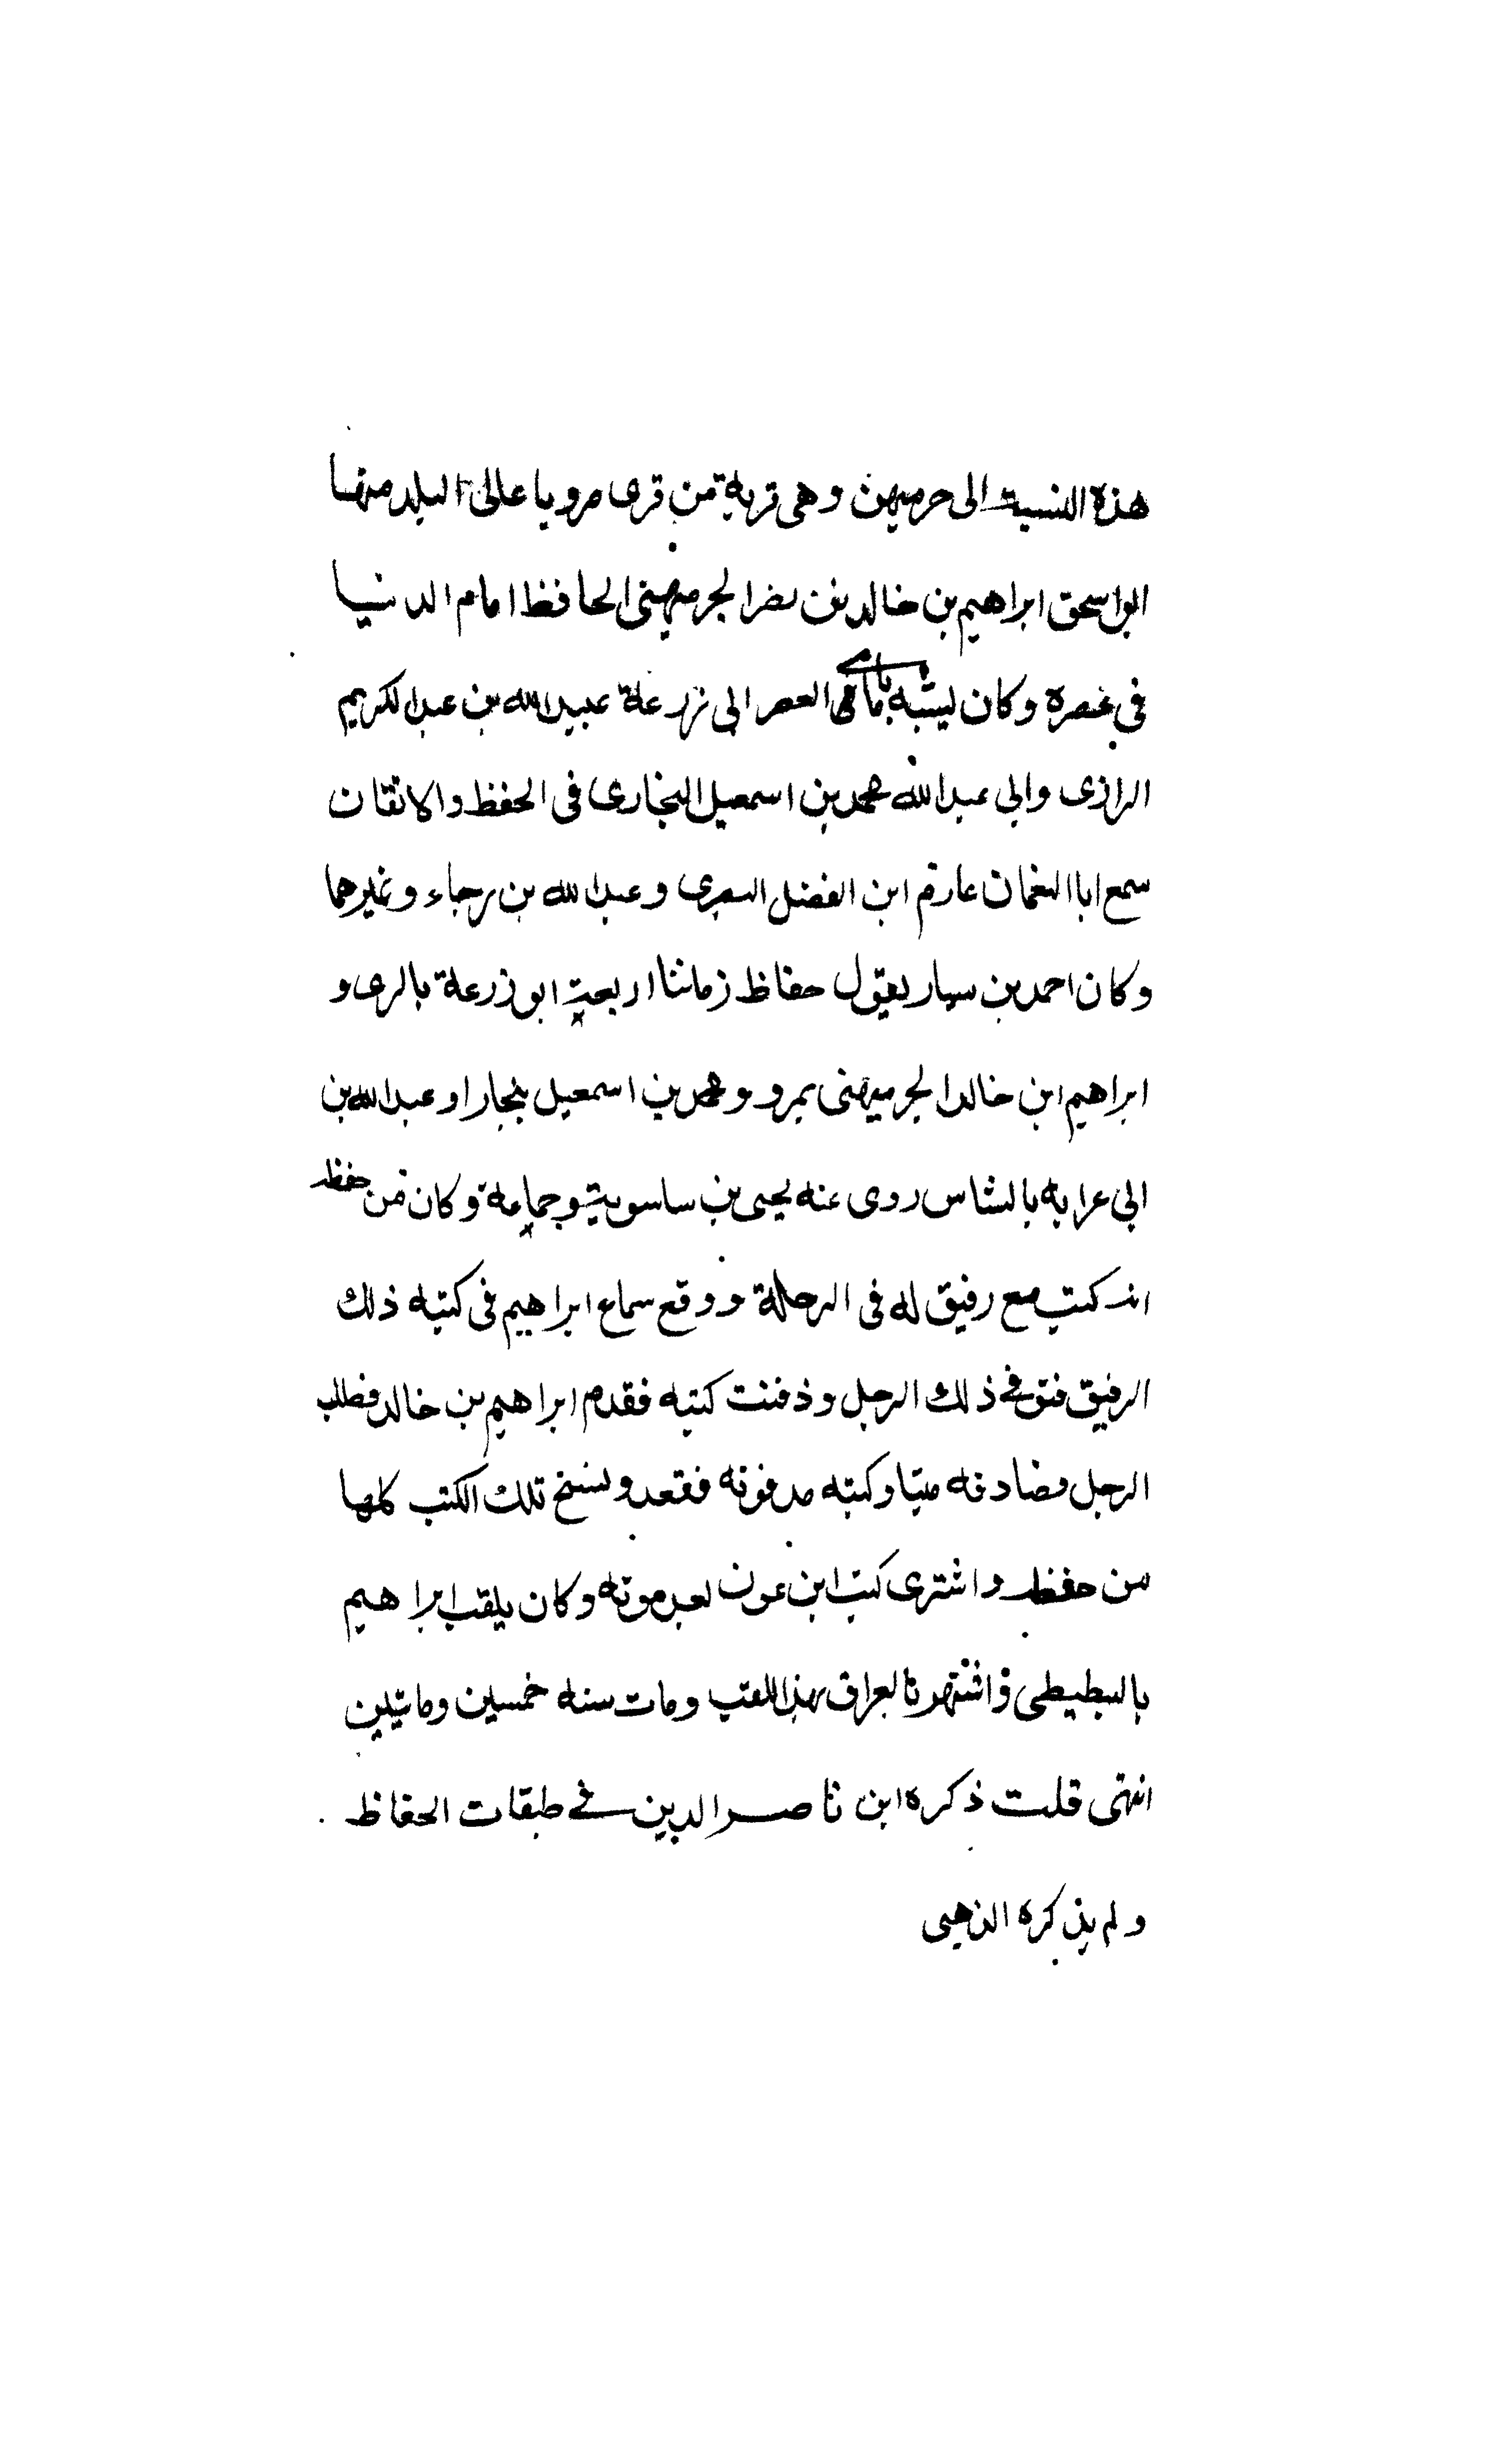 هذه النسبة الى جرميهن وهى قرية من قرى مرو باعالى البلد منها
ابو اسحق ابراهيم بن خالد بن نصر الجرميهنى الحافظ امام الدنيا
فى عصره وكان يشبه العصر ابى زرعة عبيد الله بن عبد الكريم
الرازى وابى عبد الله محمد بن اسمعيل البخارى فى الحفظ والاتقان
سمع ابا النعمان عارم ابن الفضل البصرى وعبد الله بن رجاء وغيرهما
وكان احمد بن سيار يقول حفاظ زماننا اربعة ابو زرعة بالرى و
ابراهيم ابن خالد الجرميهنى بمرو ومحمد بن اسمعيل ببخارا وعبد الله بن
ابى عرابه بالشاس روى عنه يحيى بن ساسويه وجماعة وكان من حفظه
انه كتب مع رفيق له فى الرحلة ووقع سماع ابراهيم فى كتبه ذلك
الرفيق فتوفى ذلك الرجل ودفنت كتبه فقدم ابراهيم بن خالد فطلب
الرجل فصادفه ميتا وكتبه مدفونه فقعد ونسخ تلك الكتب كلها
من حفظه واشترى كتب ابن عون بعد موته وكان يلقب ابراهيم
بالبطيطى واشتهر بالعراق بهذا اللقب ومات سنه خمسين ومايتين
انتهى قلت ذكره ابن ناصر الدين فى طبقات الحفاظ
ولم يذكره الذهبى